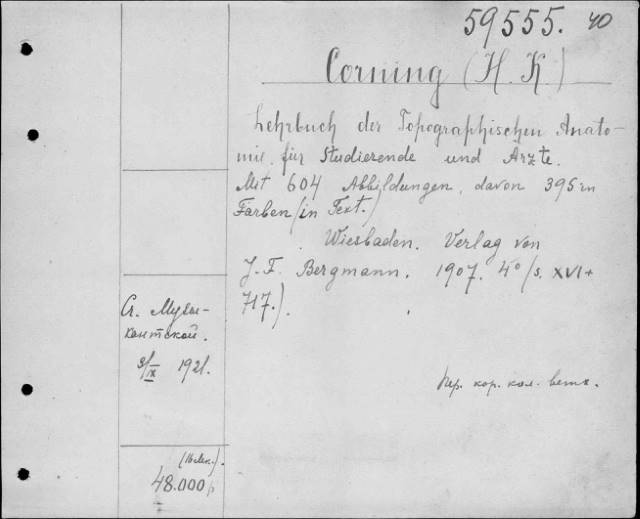 59555. 40
Corning (H. K.)
Lehrbuch der Topographischen Anato-
mie für Studierende und Ärzte.
Mit 604 Abbildungen, davon 395 in
Farben (in Text.)
Wiesbaden. Verlag von
J. F. Bergmann. 1907. 4° (s. XVI +
717.).
От. Музы-
кантской.
3/IX 1921.
пер. кор. кол. ветх.
48.000